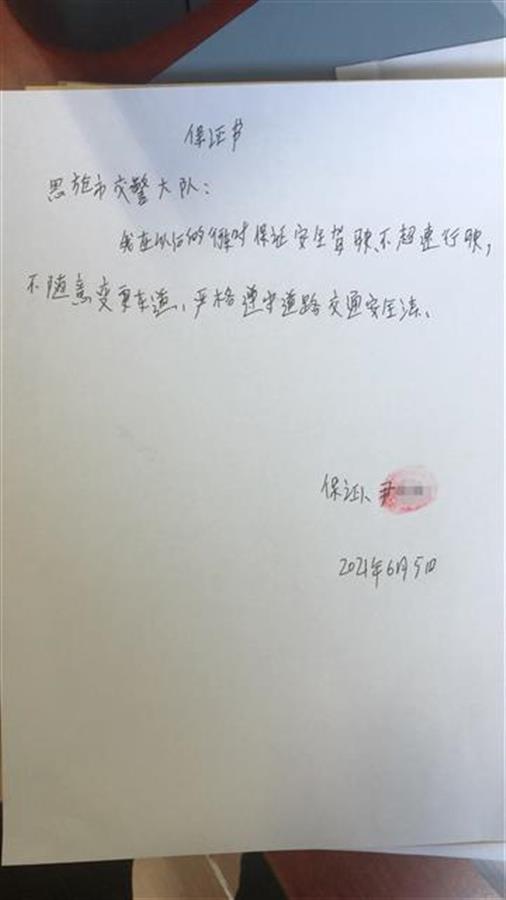 保证书
恩施市交警大队:
我在以后的 保证安全驾驶,不超速行驶,
不随意变更车道、严格遵守道路交通安全法、
保证人 尹
2021年6月5日